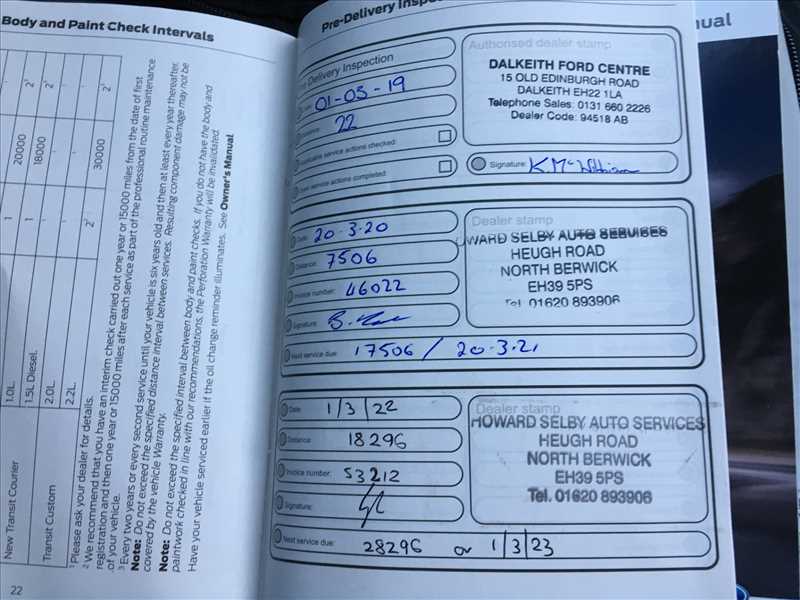 Body and Paint Check Intervals
1.0L
1
20000
1.5L Diesel.
1
18000
2¹
2.0L
2.2L
2¹
30000
2¹
New Transit Courier
Transit Custom
¹ Please ask your dealer for details.
² We recommend that you have an interim check carried out one year or 15000 miles from the date of first
registration and then one year or 15000 miles after each service as part of the professional routine maintenance
of your vehicle.
³ Every two years or every second service until your vehicle is six years old and then at least every year thereafter.
Note: Do not exceed the specified distance interval between services. Resulting component damage may not be
covered by the vehicle Warranty.
Note: Do not exceed the specified interval between body and paint checks. If you do not have the body and
paintwork checked in line with our recommendations, the Perforation Warranty will be invalidated.
Have your vehicle serviced earlier if the oil change reminder illuminates. See Owner's Manual.
22
Pre-Delivery
Delivery Inspection
01-05-19
22
service actions checked:
service actions completed:
Authorised dealer stamp
DALKEITH FORD CENTRE
15 OLD EDINBURGH ROAD
DALKEITH EH22 1LA
Telephone Sales: 0131 660 2226
Dealer Code: 94518 AB
Signature:
Date: 20-3-20
Distance: 7506
Invoice number: 46022
Signature:
Next service due: 17506 / 20-3-21
Dealer stamp
OWARD SELBY AUTO SERVICES
HEUGH ROAD
NORTH BERWICK
EH39 5PS
Tel. 01620 893906
Date 1/3/22
Distance: 18296
Invoice number: 53212
Signature:
Next service due: 28296 or 1/3/23
Dealer stamp
HOWARD SELBY AUTO SERVICES
HEUGH ROAD
NORTH BERWICK
EH39 5PS
Tel. 01620 893906
nual